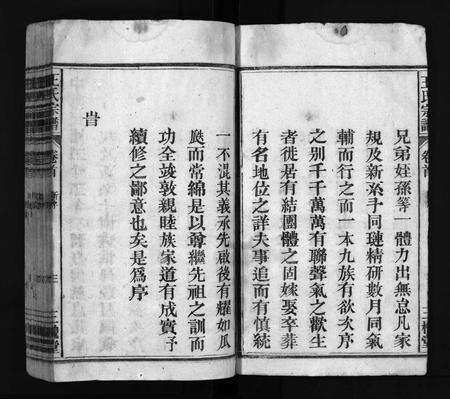 兄弟姪孫等一體力出無怠凡家
規及新系予同璉精研數月同氣
輔而行之而一本九族有欲次序
之别千千萬萬有聯聲氣之歡生
者徙居有結團體之固嫁娶卒葬
有名地位之詳夫事追而有慎統
王氏宗譜
卷首
三槐堂
一不混其義承先啟後有耀如瓜
瓞而常綿是以尊繼先祖之訓而
功全竣敦親睦族家道有成實予
續修之鄙意也矣是爲序
旹
王氏宗譜 卷首 新序
三槐堂